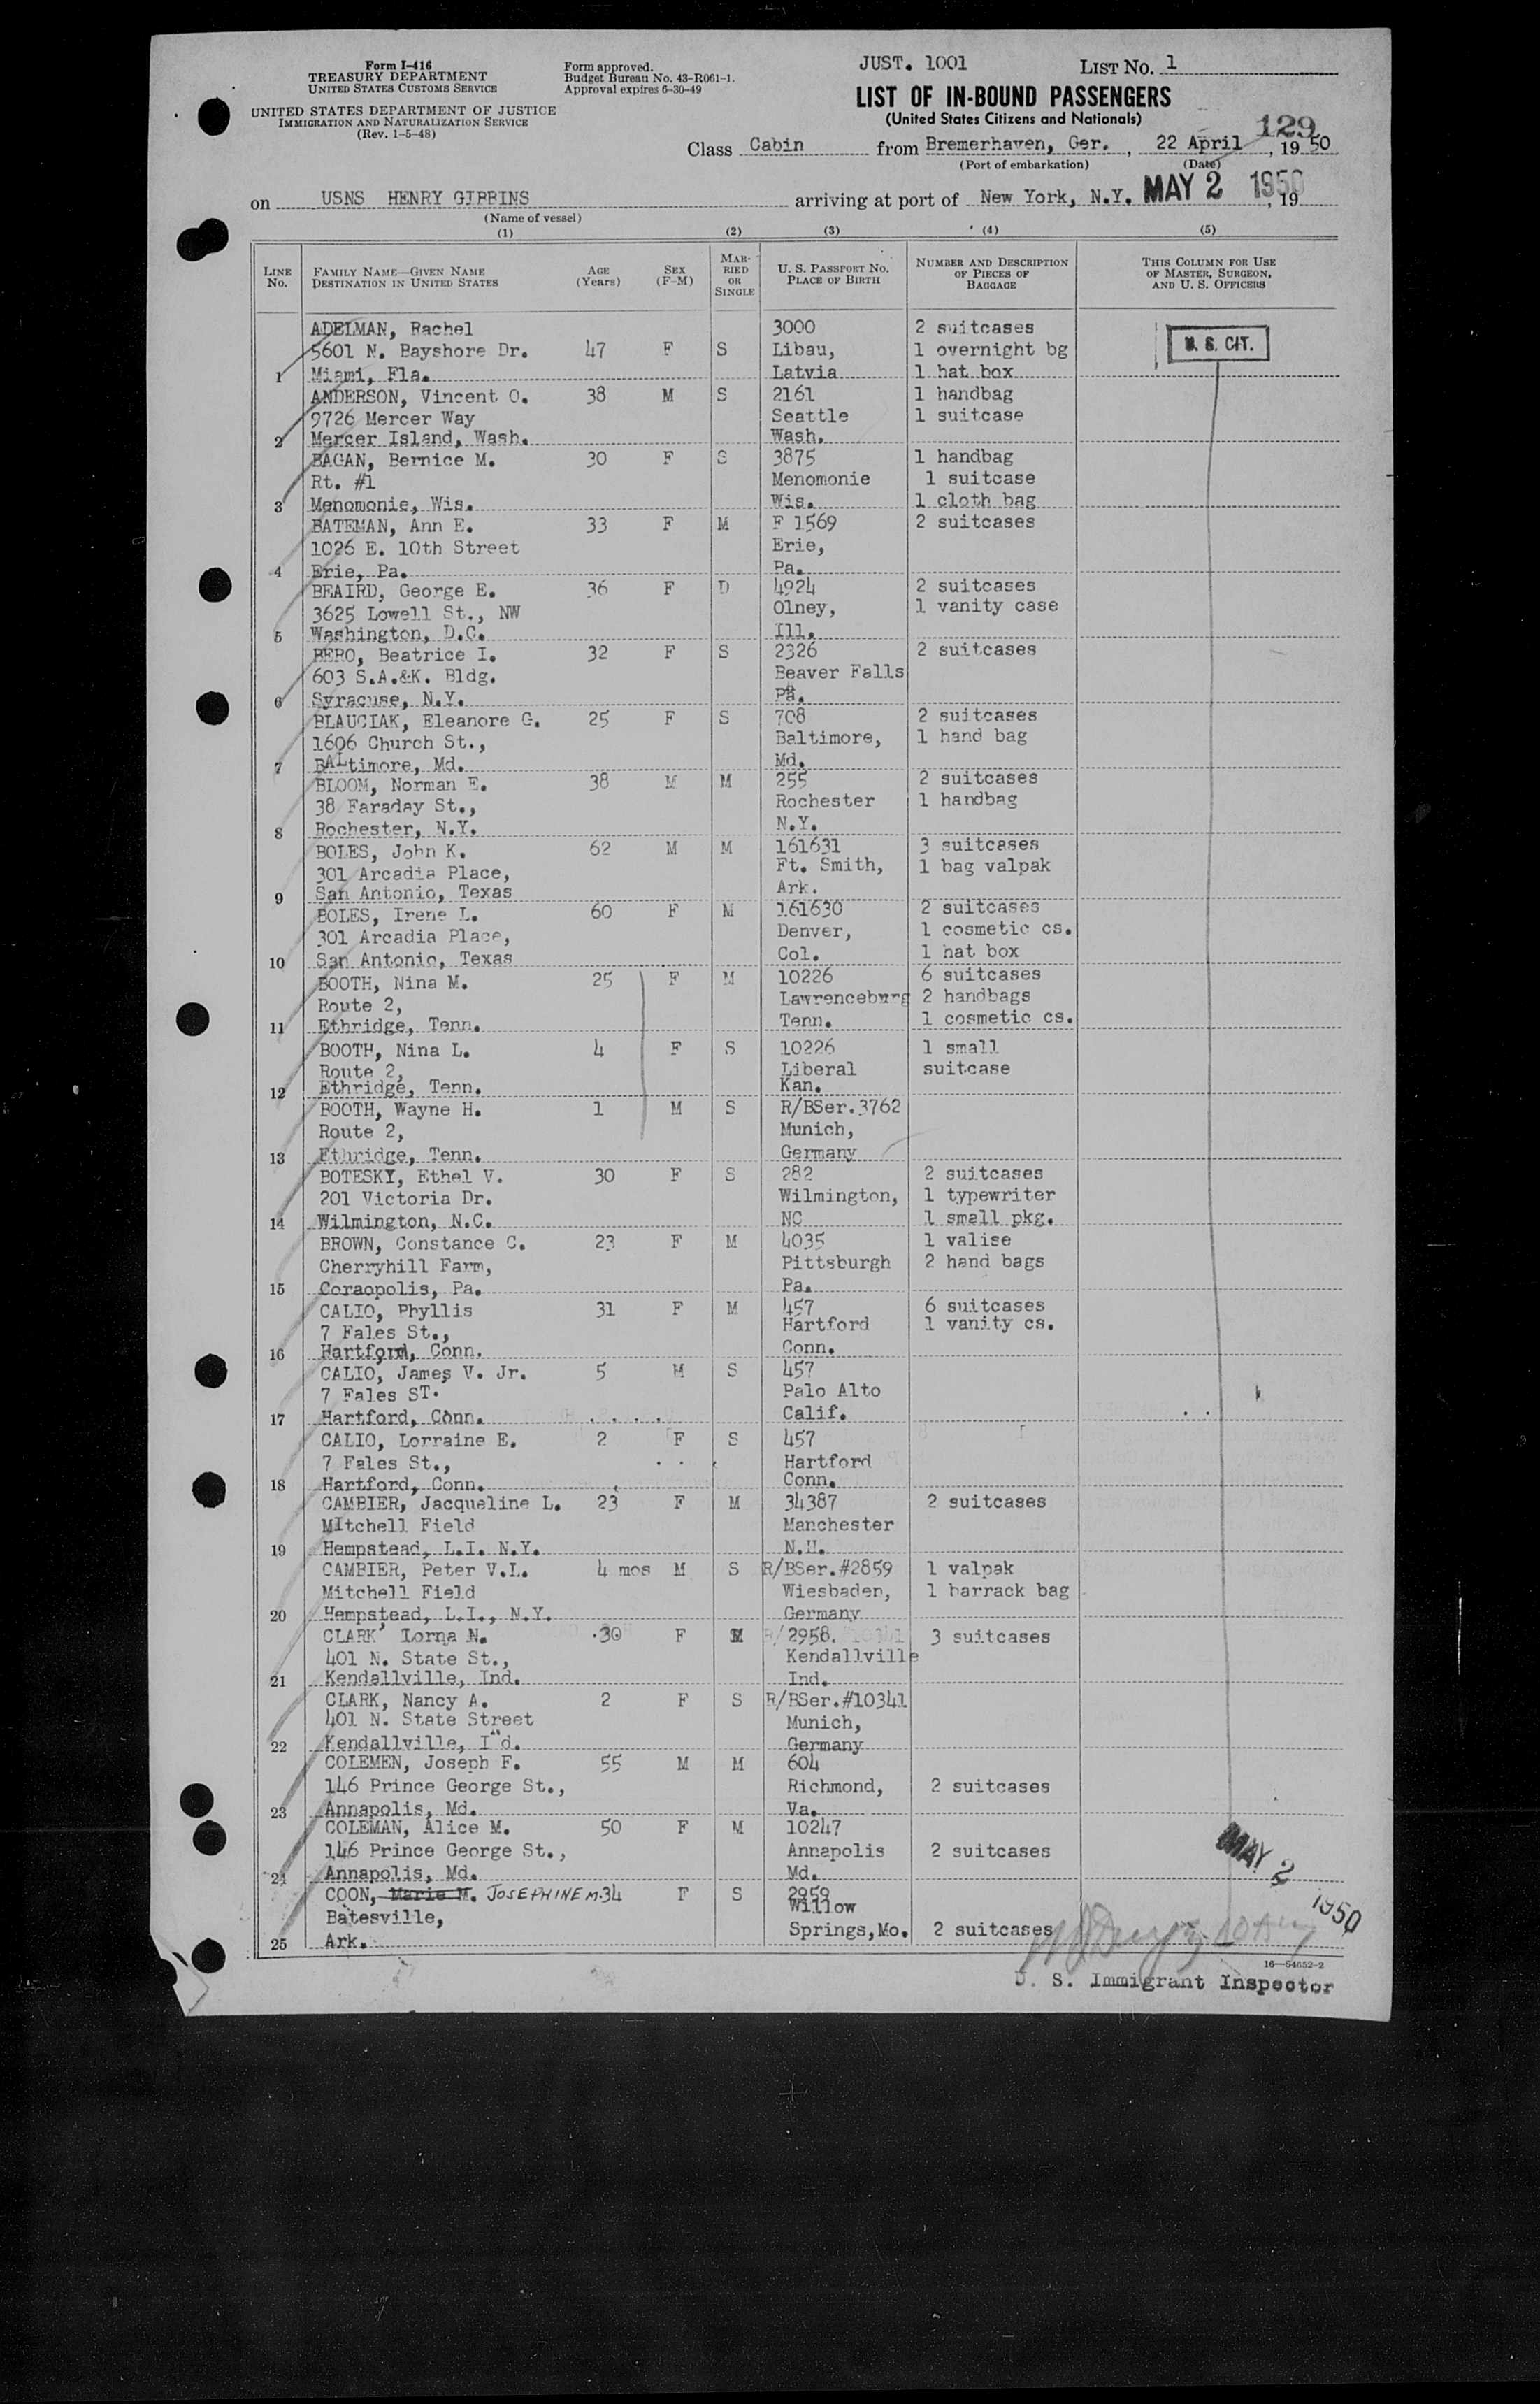 Form I-416
TREASURY DEPARTMENT
UNITED STATES CUSTOMS SERVICE
UNITED STATES DEPARTMENT OF JUSTICE
IMMIGRATION AND NATURALIZATION SERVICE
(Rev. 1-5-48)
Form approved.
Budget Bureau No. 43-R061-1.
Approval expires 6-30-49
JUST. 1001
LIST NO. 1
LIST OF IN-BOUND PASSENGERS
(United States Citizens and Nationals)
129
Class Cabin from Bremerhaven, Ger., 22 April, 19 50
(Port of embarkation) (Date)
on USNS HENRY GIBBINS arriving at port of New York, N.Y. MAY 2 1950, 19
(Name of vessel)
(1) (2) (3) (4) (5)
LINE NO. FAMILY NAME—GIVEN NAME DESTINATION IN UNITED STATES AGE (Years) SEX (F-M) MARRIED OR SINGLE U. S. PASSPORT NO. PLACE OF BIRTH NUMBER AND DESCRIPTION OF PIECES OF BAGGAGE THIS COLUMN FOR USE OF MASTER, SURGEON, AND U. S. OFFICERS
ADELMAN, Rachel 3000 2 suitcases
5601 N. Bayshore Dr. 47 F S Libau, 1 overnight bg U. S. CIT.
1 Miami, Fla. Latvia 1 hat box
ANDERSON, Vincent O. 38 M S 2161 1 handbag
9726 Mercer Way Seattle 1 suitcase
2 Mercer Island, Wash. Wash.
BAGAN, Bernice M. 30 F S 3875 1 handbag
Rt. #1 Menomonie 1 suitcase
3 Menomonie, Wis. Wis. 1 cloth bag
BATEMAN, Ann E. 33 F M F 1569 2 suitcases
1026 E. 10th Street Erie,
4 Erie, Pa. Pa.
BEAIRD, George E. 36 F D 4924 2 suitcases
3625 Lowell St., NW Olney, 1 vanity case
5 Washington, D.C. Ill.
BERO, Beatrice I. 32 F S 2326 2 suitcases
603 S.A.&K. Bldg. Beaver Falls
6 Syracuse, N.Y. Pa.
BLAUCIAK, Eleanore G. 25 F S 708 2 suitcases
1606 Church St., Baltimore, 1 hand bag
7 BALtimore, Md. Md.
BLOOM, Norman E. 38 M M 255 2 suitcases
38 Faraday St., Rochester 1 handbag
8 Rochester, N.Y. N.Y.
BOLES, John K. 62 M M 161631 3 suitcases
301 Arcadia Place, Ft. Smith, 1 bag valpak
9 San Antonio, Texas Ark.
BOLES, Irene L. 60 F M 161630 2 suitcases
301 Arcadia Place, Denver, 1 cosmetic cs.
10 San Antonio, Texas Col. 1 hat box
BOOTH, Nina M. 25 F M 10226 6 suitcases
Route 2, Lawrenceburg 2 handbags
11 Ethridge, Tenn. Tenn. 1 cosmetic cs.
BOOTH, Nina L. 4 F S 10226 1 small
Route 2, Liberal suitcase
12 Ethridge, Tenn. Kan.
BOOTH, Wayne H. 1 M S R/BSer.3762
Route 2, Munich,
13 Ethridge, Tenn. Germany
BOTESKY, Ethel V. 30 F S 282 2 suitcases
201 Victoria Dr. Wilmington, 1 typewriter
14 Wilmington, N.C. NC 1 small pkg.
BROWN, Constance C. 23 F M 4035 1 valise
Cherryhill Farm, Pittsburgh 2 hand bags
15 Coraopolis, Pa. Pa.
CALIO, Phyllis 31 F M 457 6 suitcases
7 Fales St., Hartford 1 vanity cs.
16 Hartford, Conn. Conn.
CALIO, James V. Jr. 5 M S 457
7 Fales ST. Palo Alto
17 Hartford, Conn. Calif.
CALIO, Lorraine E. 2 F S 457
7 Fales St., Hartford
18 Hartford, Conn. Conn.
CAMBIER, Jacqueline L. 23 F M 34387 2 suitcases
MItchell Field Manchester
19 Hempstead, L.I. N.Y. N.H.
CAMBIER, Peter V.L. 4 mos M S R/BSer.#2859 1 valpak
Mitchell Field Wiesbaden, 1 barrack bag
20 Hempstead, L.I., N.Y. Germany
CLARK Lorna N. 30 F M 2958. 3 suitcases
401 N. State St., Kendallville
21 Kendallville, Ind. Ind.
CLARK, Nancy A. 2 F S R/BSer.#10341
401 N. State Street Munich,
22 Kendallville, Ind. Germany
COLEMEN, Joseph F. 55 M M 604
146 Prince George St., Richmond, 2 suitcases
23 Annapolis, Md. Va.
COLEMAN, Alice M. 50 F M 10247
146 Prince George St., Annapolis 2 suitcases
24 Annapolis, Md. Md.
COON, Marie M. JOSEPHINE M. 34 F S 2959
Batesville, Willow
25 Ark. Springs, Mo. 2 suitcases
MAY 2 1950
16—54652-2
U. S. Immigrant Inspector